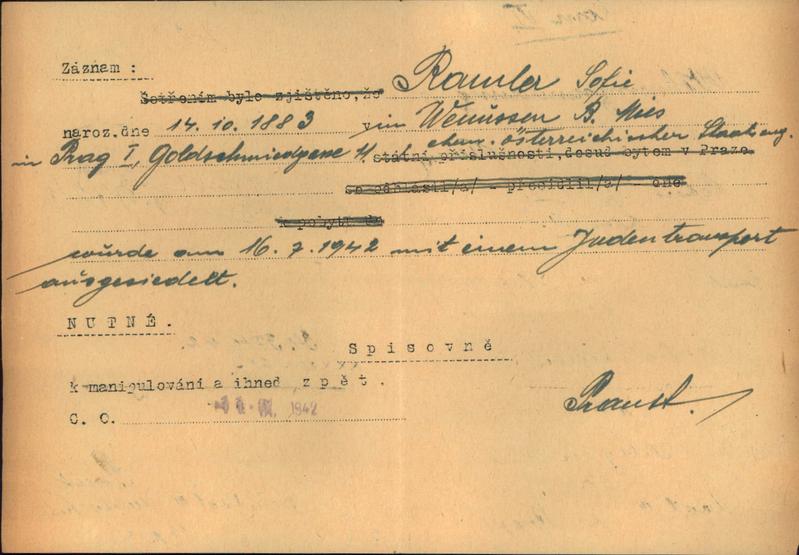 Záznam :
Šetřením bylo zjištěno, že Ramler Sofie
naroz. dne 14.10.1883 v in Wenussen B. Mies
in Prag I, Goldschmiedgasse 11, ehem. österreichischer Staatsang.
státní příslušnosti, dosud bytem v Praze
se odhlásil/a/ - přesídlil/a/ - dne
k pobytu do
wurde am 16.7.1942 mit einem Judentransport
ausgesiedelt.
NUTNÉ.
Spisovně
k manipulování a ihned zpět.
C. O. 1942